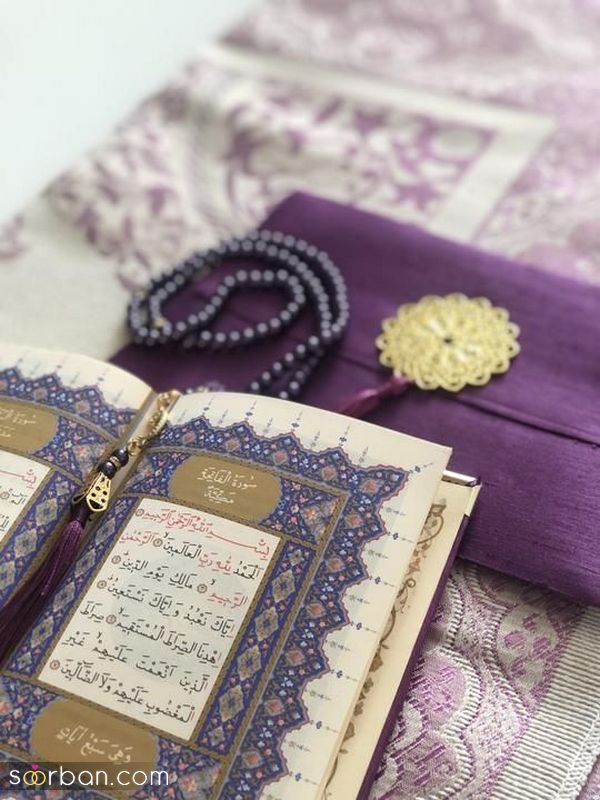 سورة الفاتحة
مكية
بِسْمِ اللهِ الرَّحْمٰنِ الرَّحِيمِ
اَلْحَمْدُ لِلّٰهِ رَبِّ الْعَالَمِينَ الرَّحْمٰنِ
الرَّحِيمِ مَالِكِ يَوْمِ الدِّينِ
اِيَّاكَ نَعْبُدُ وَاِيَّاكَ نَسْتَعِينُ
اِهْدِنَا الصِّرَاطَ الْمُسْتَقِيمَ صِرَاطَ
الَّذِينَ اَنْعَمْتَ عَلَيْهِمْ غَيْرِ
الْمَغْضُوبِ عَلَيْهِمْ وَلَا الضَّالِّينَ
وهي سبع آيات
soorban.com